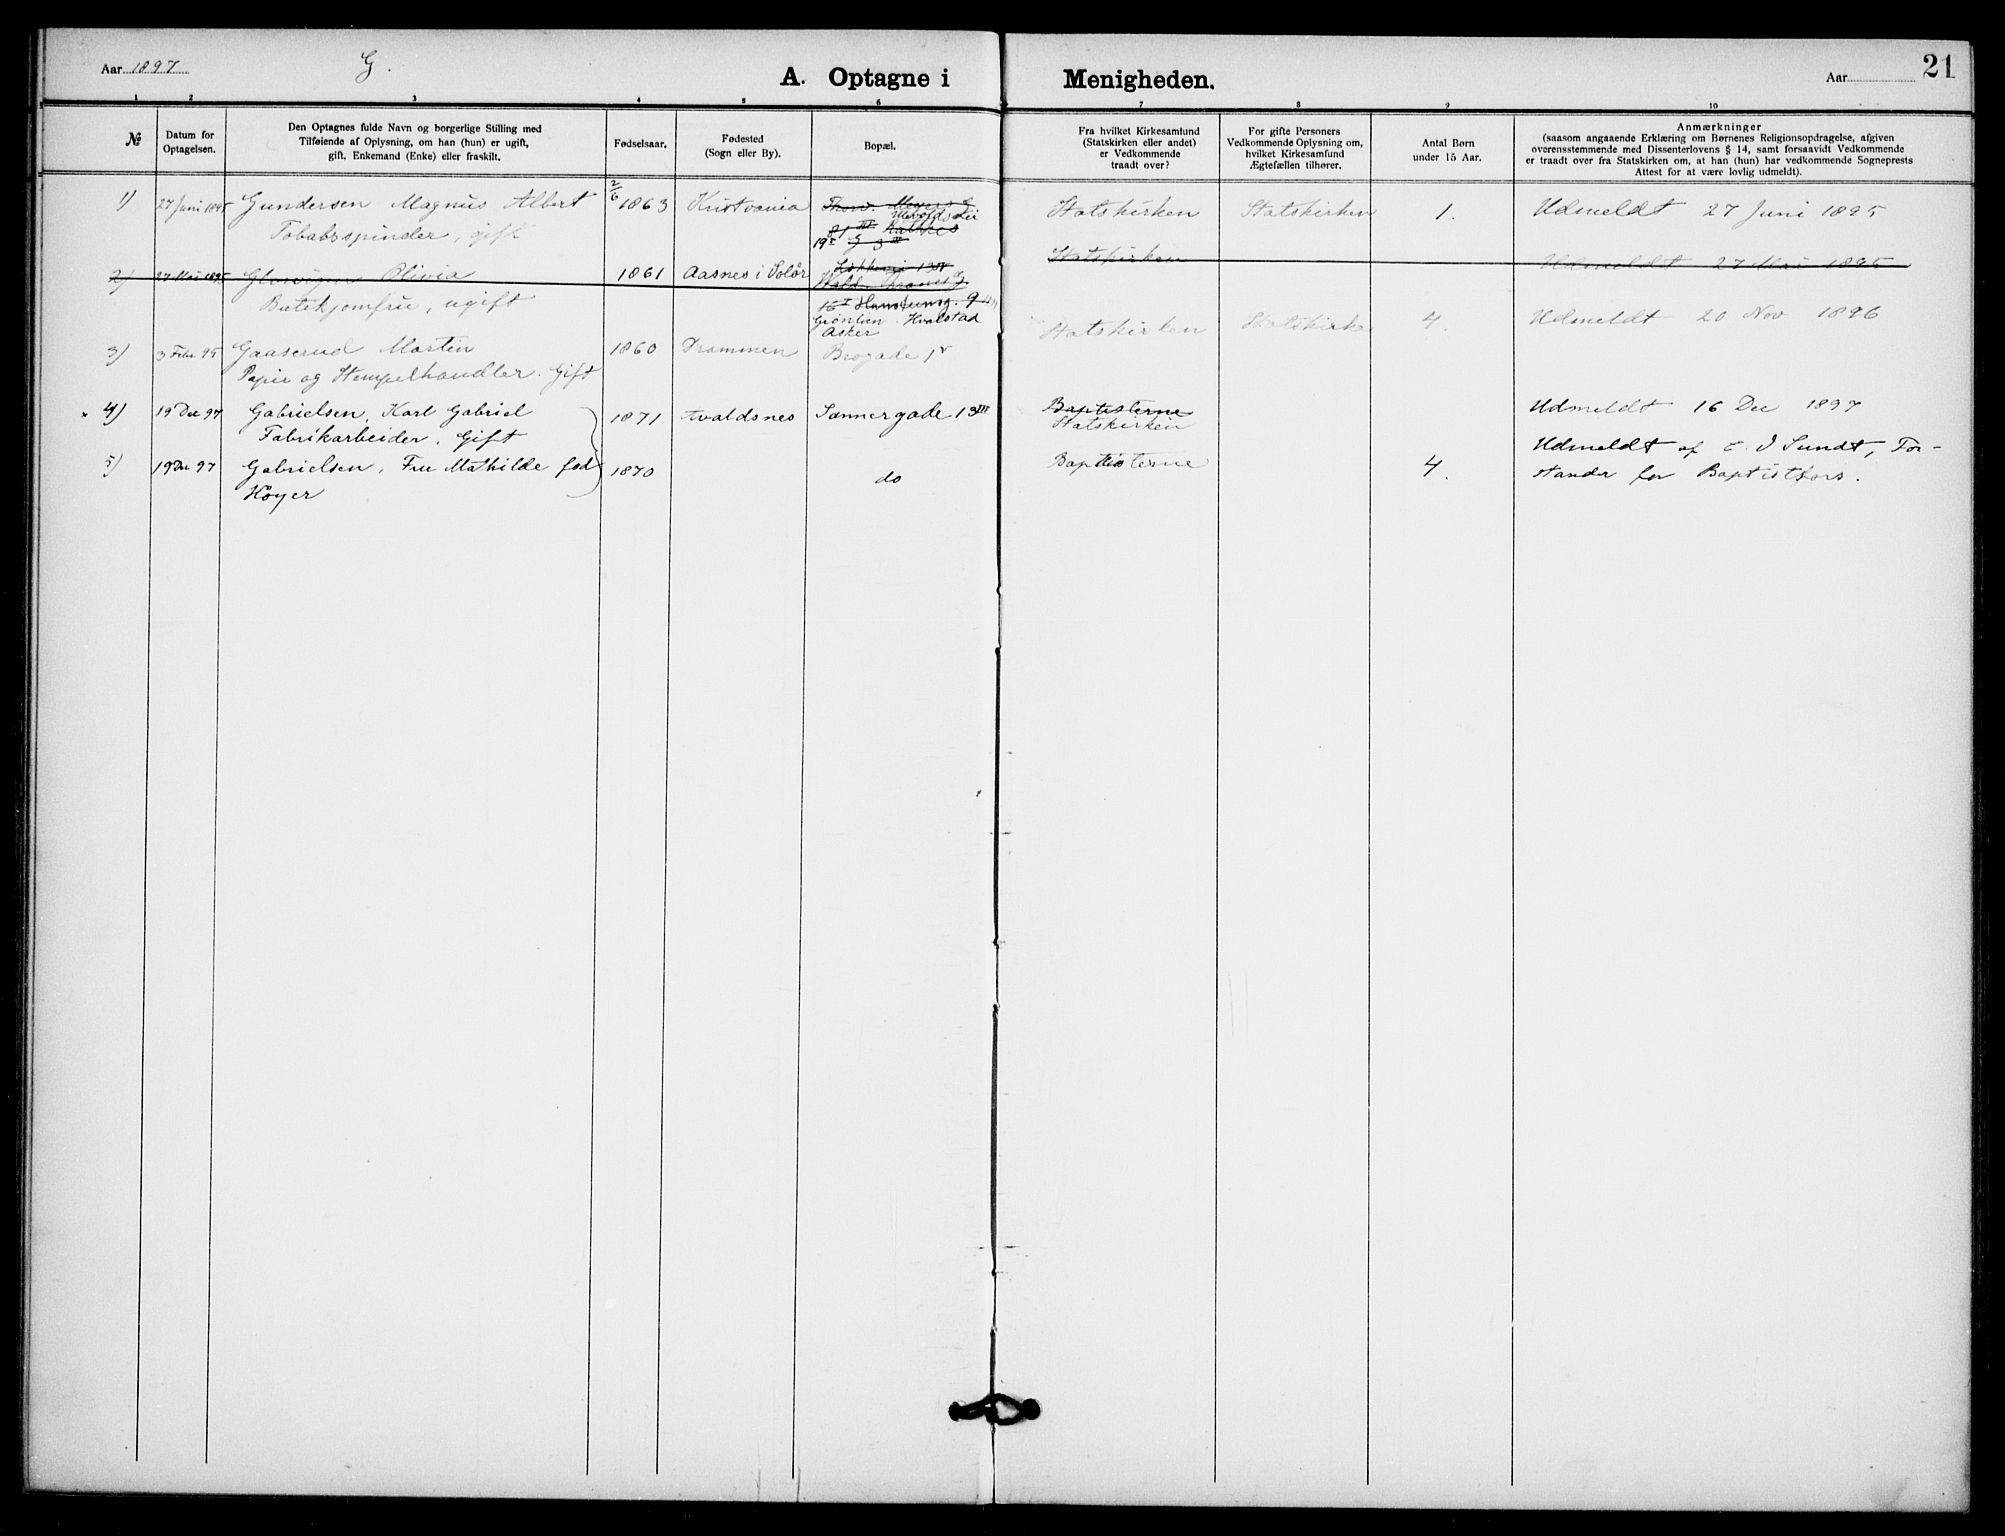 21
Aar 1897 G. A. Optagne i Menigheden. Aar
1 2 3 4 5 6 7 8 9 10
№
Datum for
Optagelsen.
Den Optagnes fulde Navn og borgerlige Stilling med
Tilføiende af Oplysning, om han (hun) er ugift,
gift, Enkemand (Enke) eller fraskilt.
Fødselsaar.
Fødested
(Sogn eller By).
Bopæl.
Fra hvilket Kirkesamfund
(Statskirken eller andet)
er Vedkommende
traadt over?
For gifte Personers
Vedkommende Oplysning om,
hvilket Kirkesamfund
Ægtefællen tilhører.
Antal Børn
under 15 Aar.
Anmærkninger
(saasom angaaende Erklæring om Børnenes Religionsopdragelse, afgiven
overensstemmende med Dissenterlovens § 14, samt forsaavidt Vedkommende
er traadt over fra Statskirken om, at han (hun) har vedkommende Sogneprests
Attest for at være lovlig udmeldt).
1) 27 Juni 1895 Gundersen Magnus Albert 2/6 1863 Kristiania Thorv. Meyers G Statskirken Statskirken 1. Udmeldt 27 Juni 1895
Tobaksspinder, gift
2) 27 Mai 1895 Olivia 1861 Aasnes i Solör Statskirken Udmeldt 27 Mai 1895
Butikjomfru, ugift
Grönlien Hvalstad
Asker
3) 3 Febr 95 Gaaserud Martin 1860 Drammen Brogade Statskirken Statskirk 4. Udmeldt 20 Nov 1896
Papir og Stempelhandler. Gift
4) 19 Dec 97 Gabrielsen, Karl Gabriel 1871 Avaldsnes Sannergade 13 III Baptisterne Udmeldt 16 Dec 1897
Statskirken
Fabrikarbeider. Gift
5) 19 Dec 97 Gabrielsen, Fru Mathilde fød 1870 do Baptisterne 4. Udmeldt af E. J Sundt, For-
Höyer stander for Baptistfors.